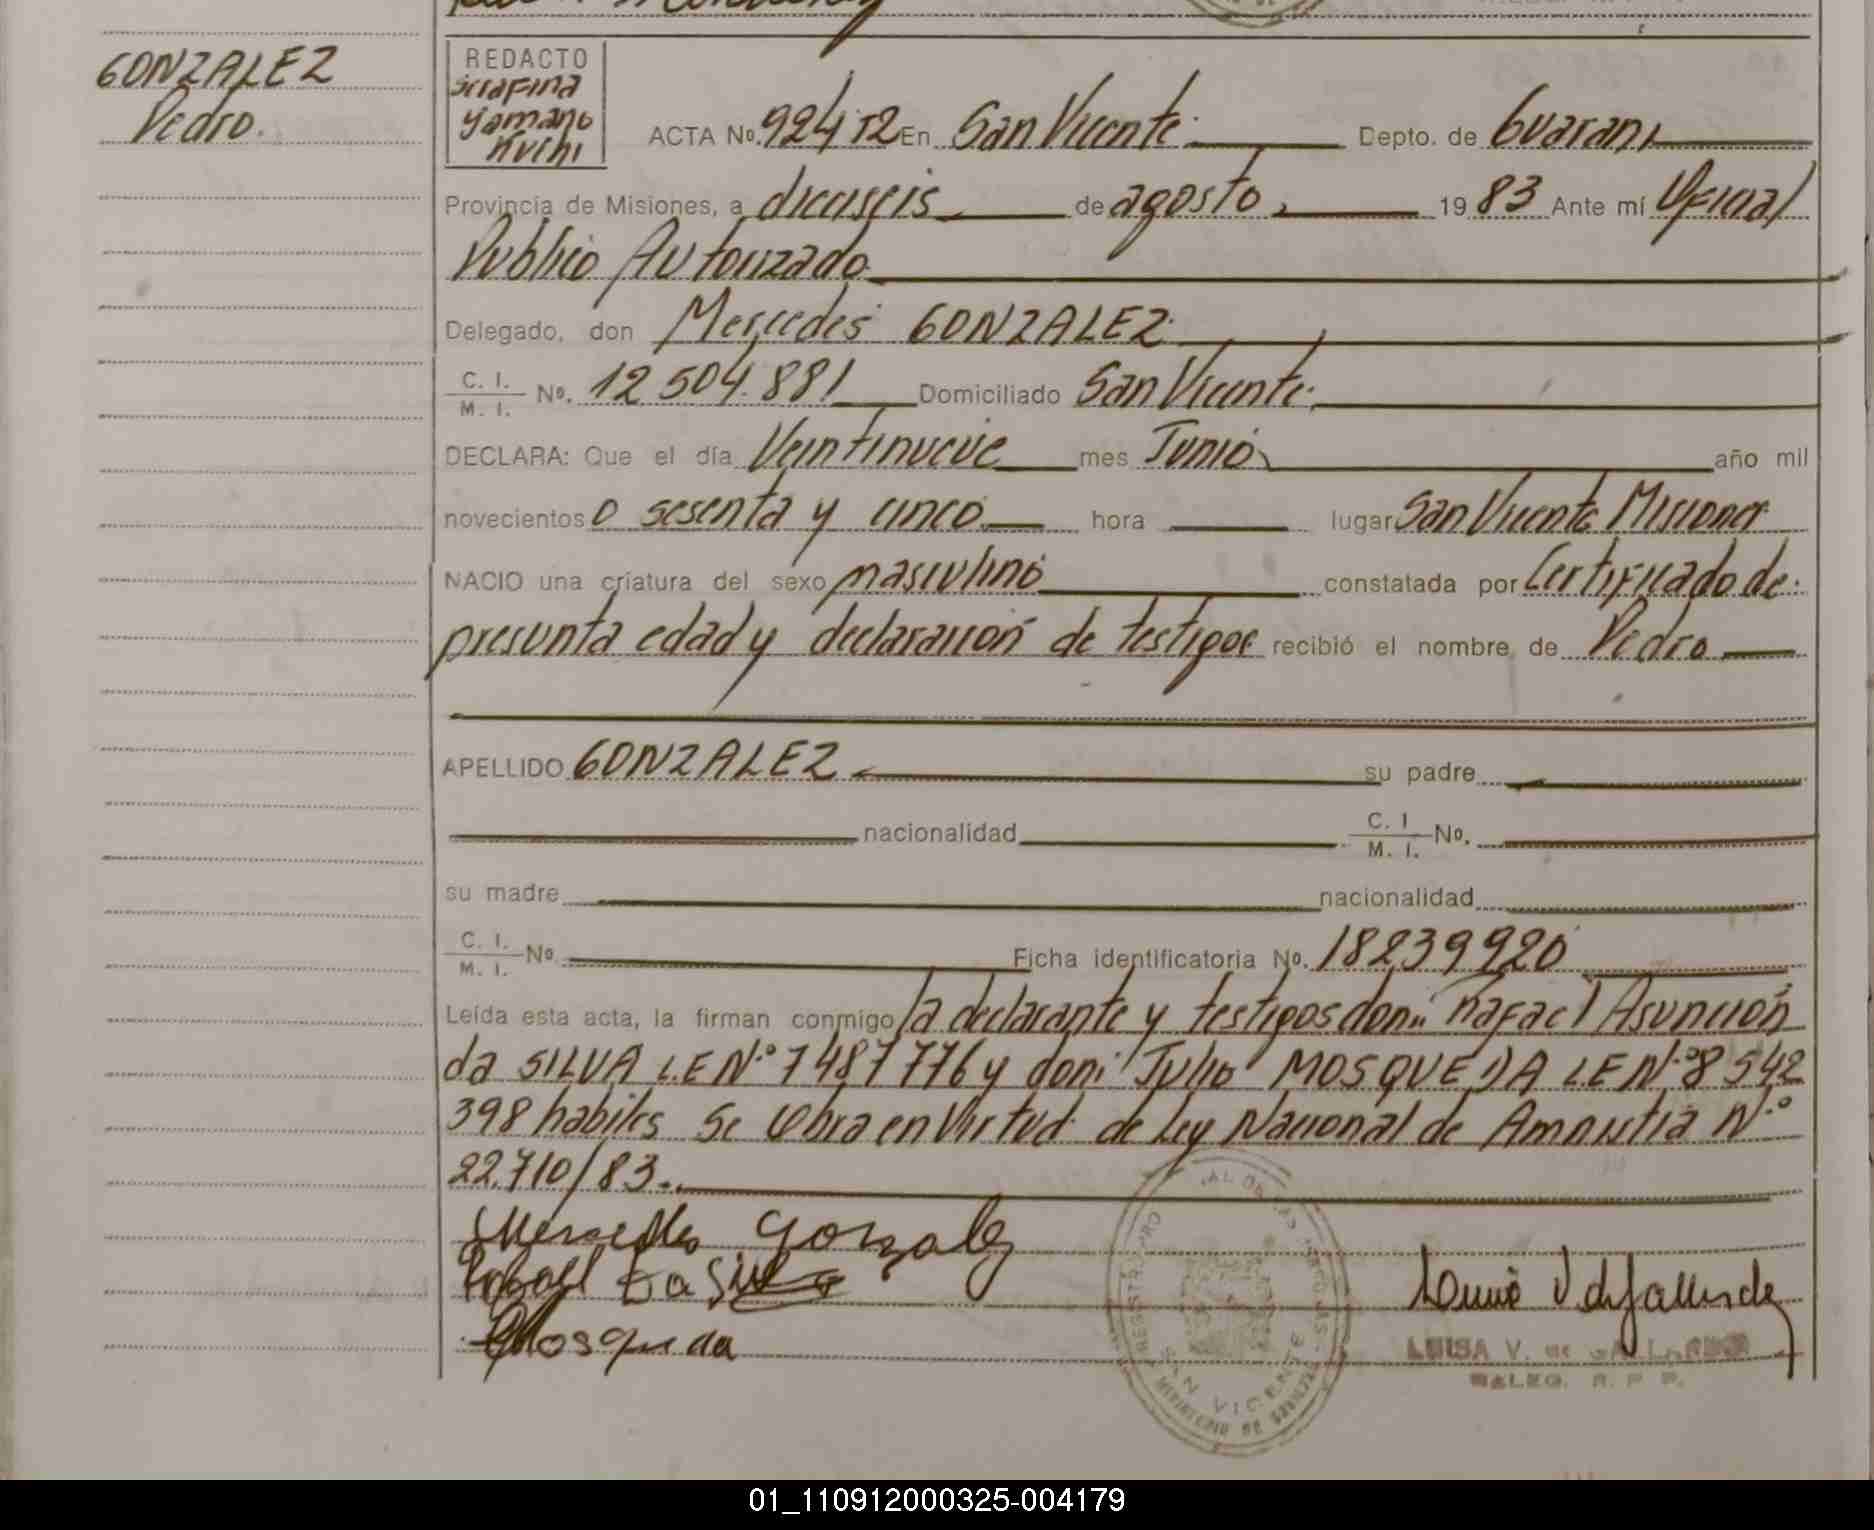 GONZALEZ
Pedro.
REDACTO
Serafina
Yamano
Kuchi
ACTA No. 924 T2 En San Vicente. Depto. de Guarani
Provincia de Misiones, a dieciseis de agosto. 19 83 Ante mí Oficial
Publico Autorizado
Delegado, don Mercedes GONZALEZ
C. I. / M. I. No. 12 504.881 Domiciliado San Vicente.
DECLARA: Que el día Veintinueve mes Junio año mil
novecientos o sesenta y cinco hora lugar San Vicente Misiones
NACIO una criatura del sexo masculino constatada por Certificado de
presunta edad y declaración de testigos recibió el nombre de Pedro
APELLIDO GONZALEZ su padre
nacionalidad C. I. / M. I. No.
su madre nacionalidad
C. I. / M. I. No Ficha identificatoria No. 18239920
Leída esta acta, la firman conmigo la declarante y testigos don: Rafael Asunción
da SILVA L.E N.º 7487776 y don: Julio MOSQUEDA L.E N.º 8 542
398 habiles Se Obra en Virtud de Ley Nacional de Amnistia N.º
22.710/83.
Mercedes Gonzalez
Rafael Da Silva
Mosqueda
SAN VICENTE
LUISA V. de GALLARDO
01_110912000325-004179